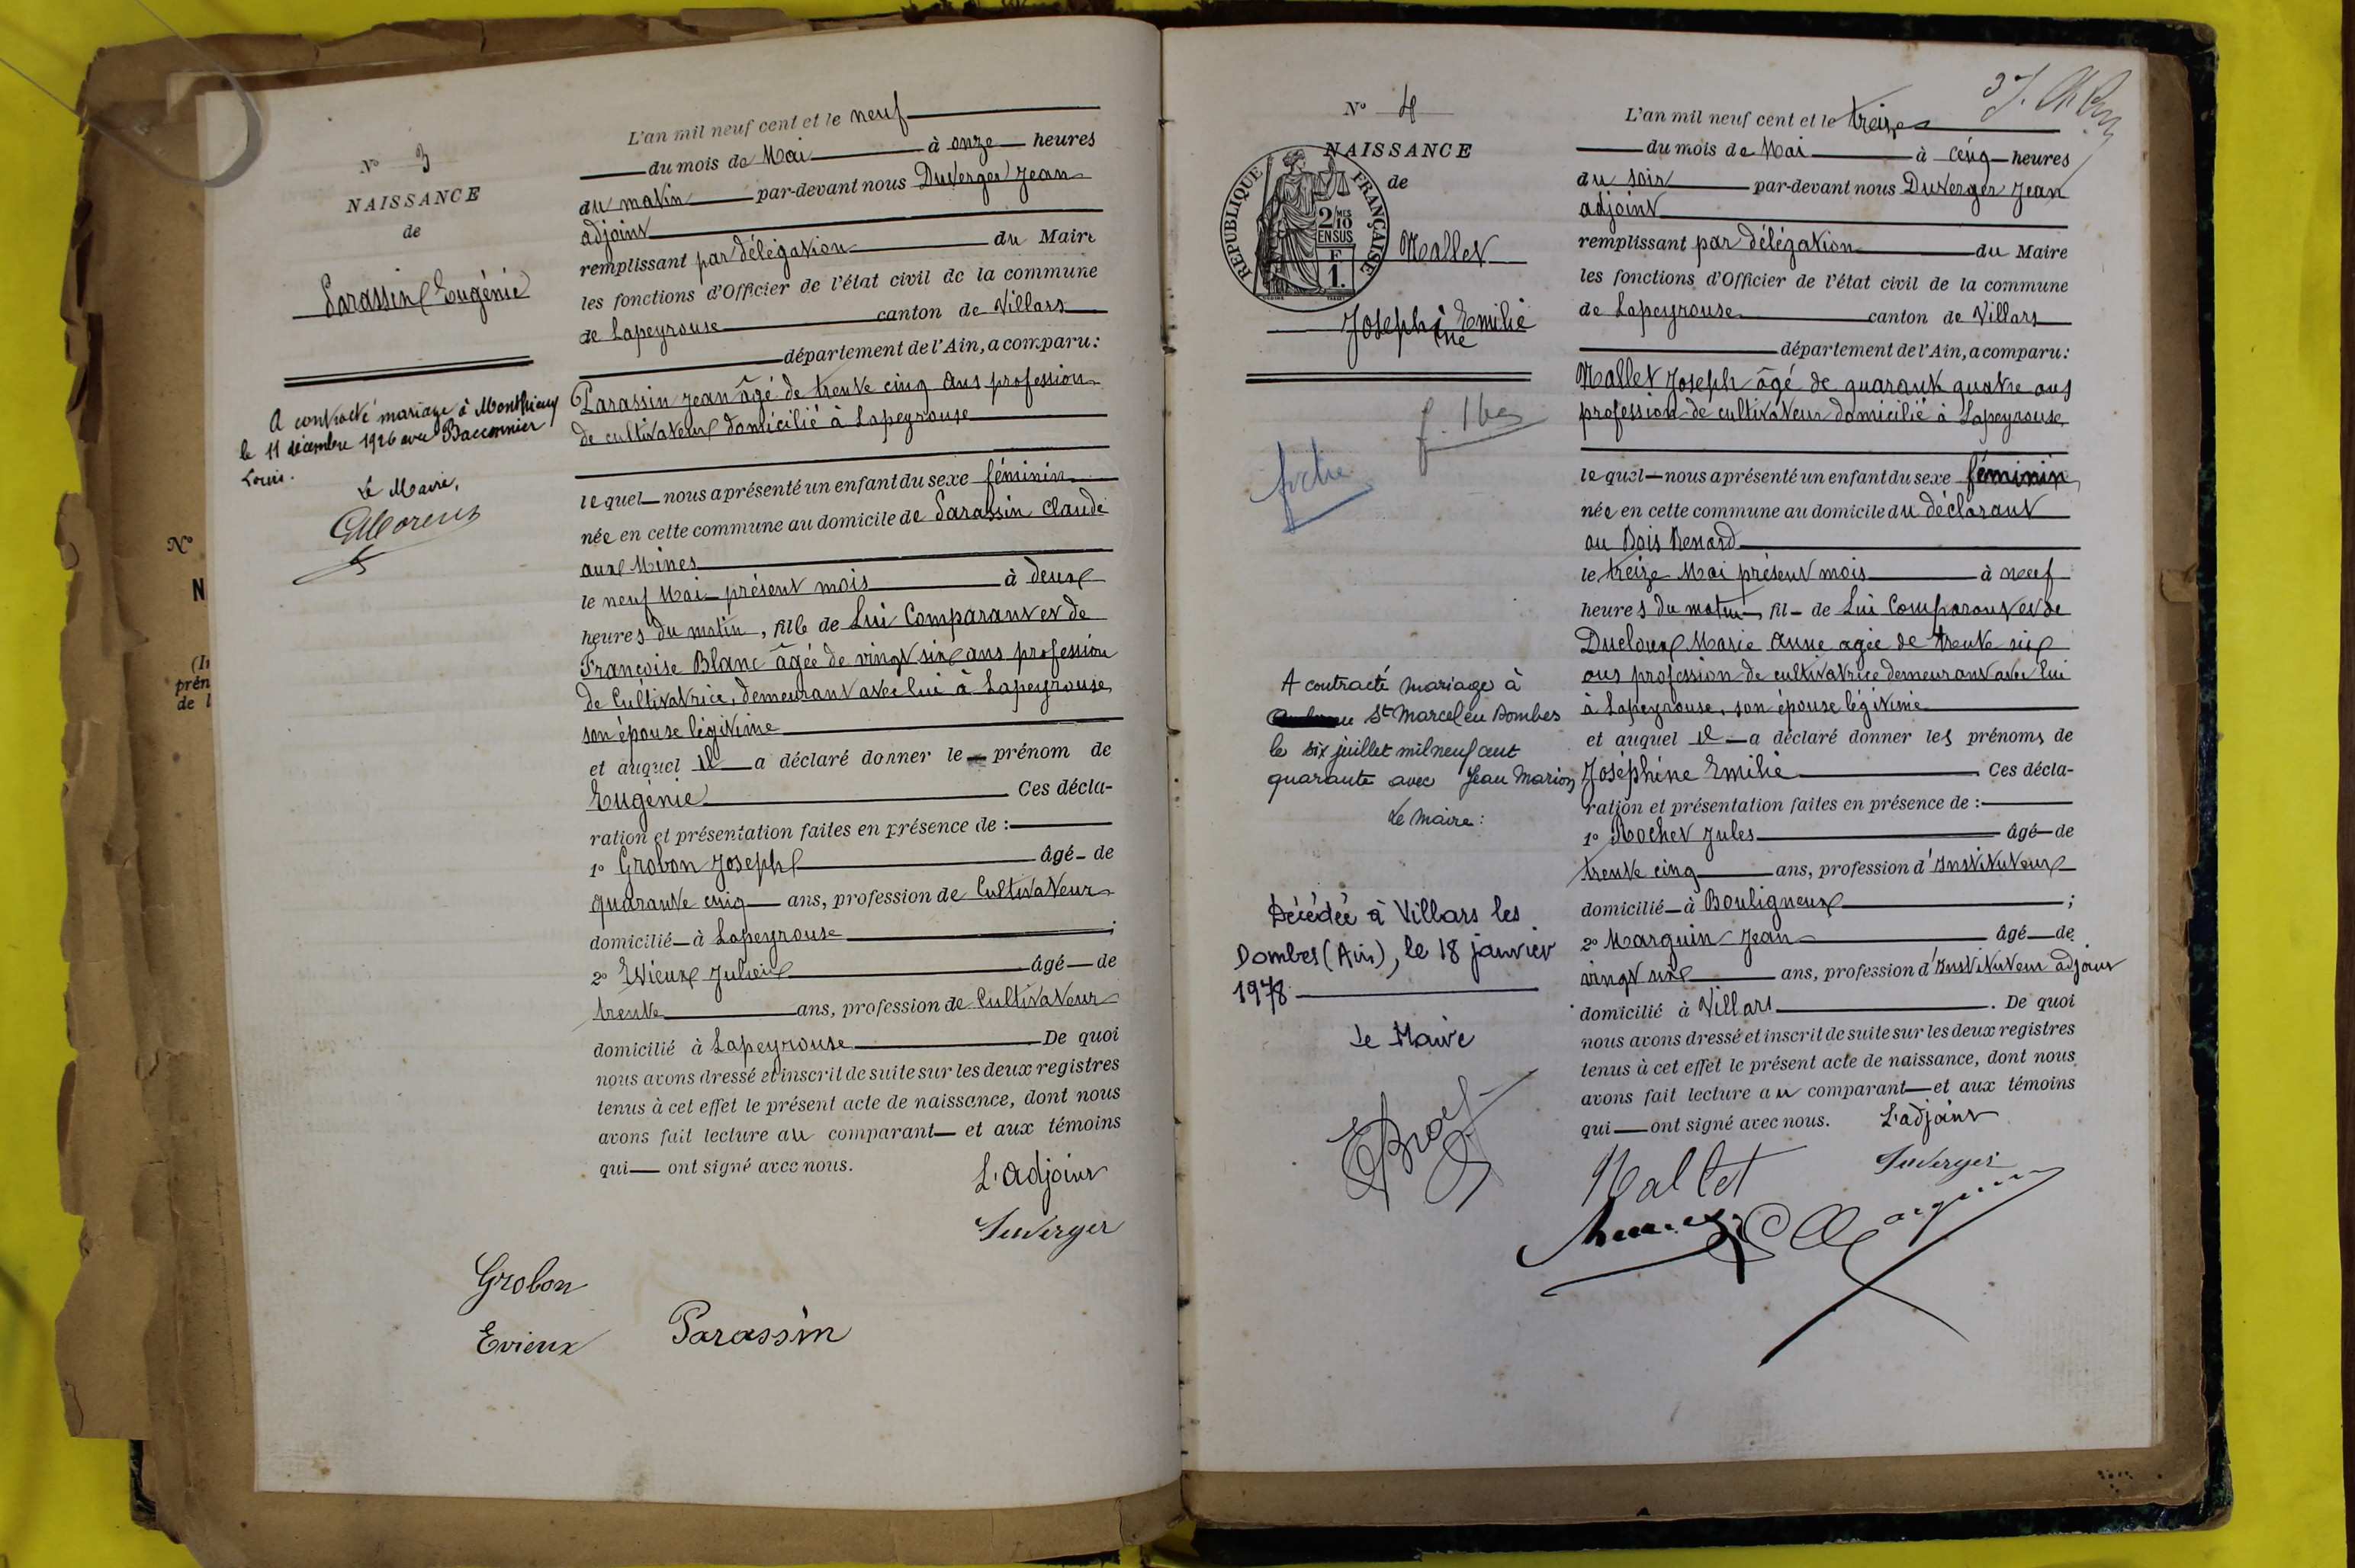 N° 3
NAISSANCE
de
Parassin Eugénie
A contracté mariage à Monthieux
le 11 décembre 1926 avec Baconnier
Louis.
Le Maire,
L'an mil neuf cent et le neuf
du mois de Mai à onze heures
du matin par-devant nous Duverger Jean
adjoint
remplissant par délégation du Maire
les fonctions d'Officier de l'état civil de la commune
de Lapeyrouse canton de Villars
département de l'Ain, a comparu:
Parassin Jean âgé de trente cinq ans profession
de cultivateur domicilié à Lapeyrouse
lequel nous a présenté un enfant du sexe féminin
née en cette commune au domicile de Parassin Claude
aux Mines
le neuf Mai présent mois à deux
heures du matin, fille de Lui Comparant et de
Françoise Blanc âgée de vingt six ans profession
de Cultivatrice, demeurant avec lui à Lapeyrouse
son épouse légitime
et auquel il a déclaré donner le prénom de
Eugénie Ces décla-
ration et présentation faites en présence de :
1° Grobon Joseph âgé de
quarante cinq ans, profession de Cultivateur
domicilié à Lapeyrouse ;
2° Evieux Julien âgé de
trente ans, profession de Cultivateur
domicilié à Lapeyrouse De quoi
nous avons dressé et inscrit de suite sur les deux registres
tenus à cet effet le présent acte de naissance, dont nous
avons fait lecture au comparant et aux témoins
qui ont signé avec nous.
L'adjoint
Duverger
Grobon
Evieux Parassin
N°
N
prén
de l
N° 4
NAISSANCE
de
RÉPUBLIQUE FRANÇAISE
2/10
EN SUS
F
1.
Mallet
Joséphine Emilie
f. 163
fiche
A contracté mariage à
St Marcel en Dombes
le six juillet mil neuf cent
quarante avec Jean Marion
Le maire :
Décédée à Villars les
Dombes (Ain), le 18 janvier
1978
Le Maire
L'an mil neuf cent et le treize
du mois de Mai à cinq heures
du soir par-devant nous Duverger Jean
adjoint
remplissant par délégation du Maire
les fonctions d'Officier de l'état civil de la commune
de Lapeyrouse canton de Villars
département de l'Ain, a comparu:
Mallet Joseph âgé de quarante quatre ans
profession de cultivateur domicilié à Lapeyrouse
lequel nous a présenté un enfant du sexe féminin
née en cette commune au domicile du déclarant
au Bois Renard
le treize Mai présent mois à neuf
heures du matin, fil de Lui Comparant et de
Ducloux Marie Anne agée de trente six
ans profession de cultivatrice demeurant avec lui
à Lapeyrouse, son épouse légitime
et auquel il a déclaré donner les prénoms de
Joséphine Emilie Ces décla-
ration et présentation faites en présence de :
1° Rochet Jules âgé de
trente cinq ans, profession d'Instituteur
domicilié à Bouligneux ;
2° Marguin Jean âgé de
vingt six ans, profession d'Instituteur adjoint
domicilié à Villars. De quoi
nous avons dressé et inscrit de suite sur les deux registres
tenus à cet effet le présent acte de naissance, dont nous
avons fait lecture au comparant et aux témoins
qui ont signé avec nous. L'adjoint
Mallet Duverger